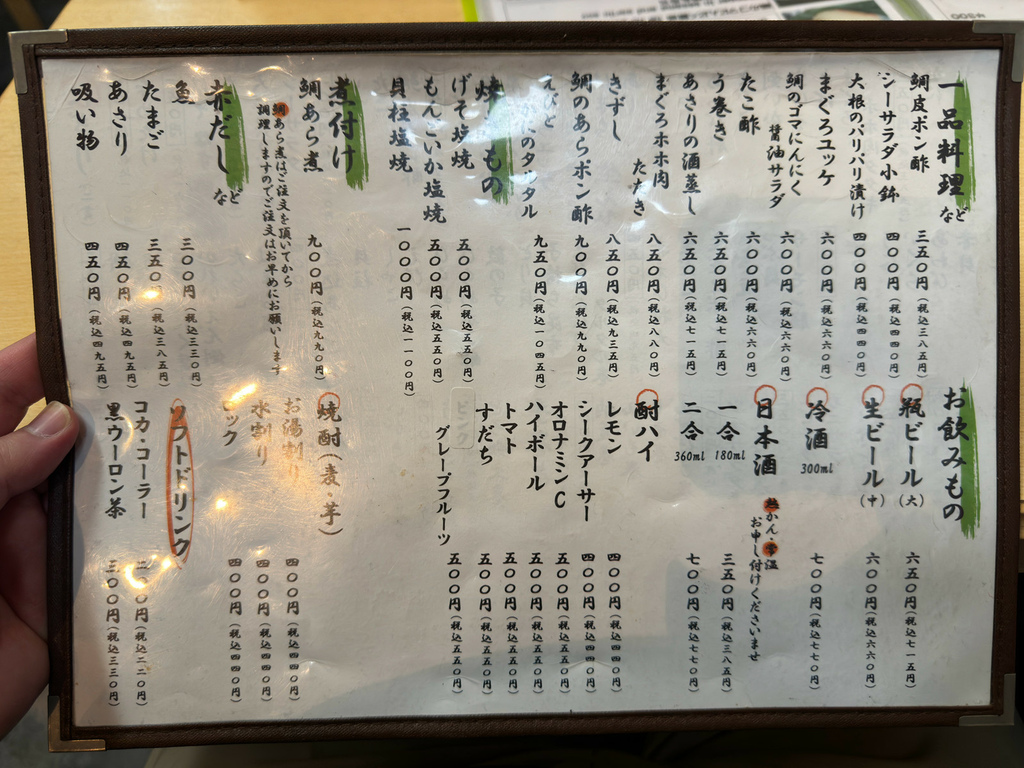 一品料理など
鯛皮ポン酢 三五〇円(税込三八五円)
シーサラダ小鉢 四〇〇円(税込四四〇円)
大根のパリパリ漬け 四〇〇円(税込四四〇円)
まぐろユッケ 六〇〇円(税込六六〇円)
鯛のゴマにんにく
醤油サラダ 六〇〇円(税込六六〇円)
たこ酢 六〇〇円(税込六六〇円)
う巻き 六五〇円(税込七一五円)
あさりの酒蒸し 六五〇円(税込七一五円)
まぐろホホ肉
たたき 八〇〇円(税込八八〇円)
きずし 八五〇円(税込九三五円)
鯛のあらポン酢 九〇〇円(税込九九〇円)
えびと
にのタルタル 九五〇円(税込一〇四五円)
焼きもの
げそ塩焼 五〇〇円(税込五五〇円)
もんごいか塩焼 五〇〇円(税込五五〇円)
貝柱塩焼 一〇〇〇円(税込一一〇〇円)
煮付け
鯛あら煮 九〇〇円(税込九九〇円)
鯛あら煮はご注文を頂いてから
調理しますのでご注文はお早めにお願いします
赤だしなど
魚 三〇〇円(税込三三〇円)
たまご 三五〇円(税込三八五円)
あさり 四五〇円(税込四九五円)
吸い物 四五〇円(税込四九五円)
お飲みもの
瓶ビール(大) 六五〇円(税込七一五円)
生ビール(中) 六〇〇円(税込六六〇円)
冷酒 300ml 七〇〇円(税込七七〇円)
日本酒 熱かん・常温
お申し付けくださいませ
一合 180ml 三五〇円(税込三八五円)
二合 360ml 七〇〇円(税込七七〇円)
酎ハイ
レモン 四〇〇円(税込四四〇円)
シークアーサー 四〇〇円(税込四四〇円)
オロナミンC 五〇〇円(税込五五〇円)
ハイボール 五〇〇円(税込五五〇円)
トマト 五〇〇円(税込五五〇円)
すだち 五〇〇円(税込五五〇円)
ピンク
グレープフルーツ 五〇〇円(税込五五〇円)
焼酎(麦・芋)
お湯割り 四〇〇円(税込四四〇円)
水割り 四〇〇円(税込四四〇円)
ロック 四〇〇円(税込四四〇円)
ソフトドリンク
コカ・コーラー 二〇〇円(税込二二〇円)
黒ウーロン茶 三〇〇円(税込三三〇円)